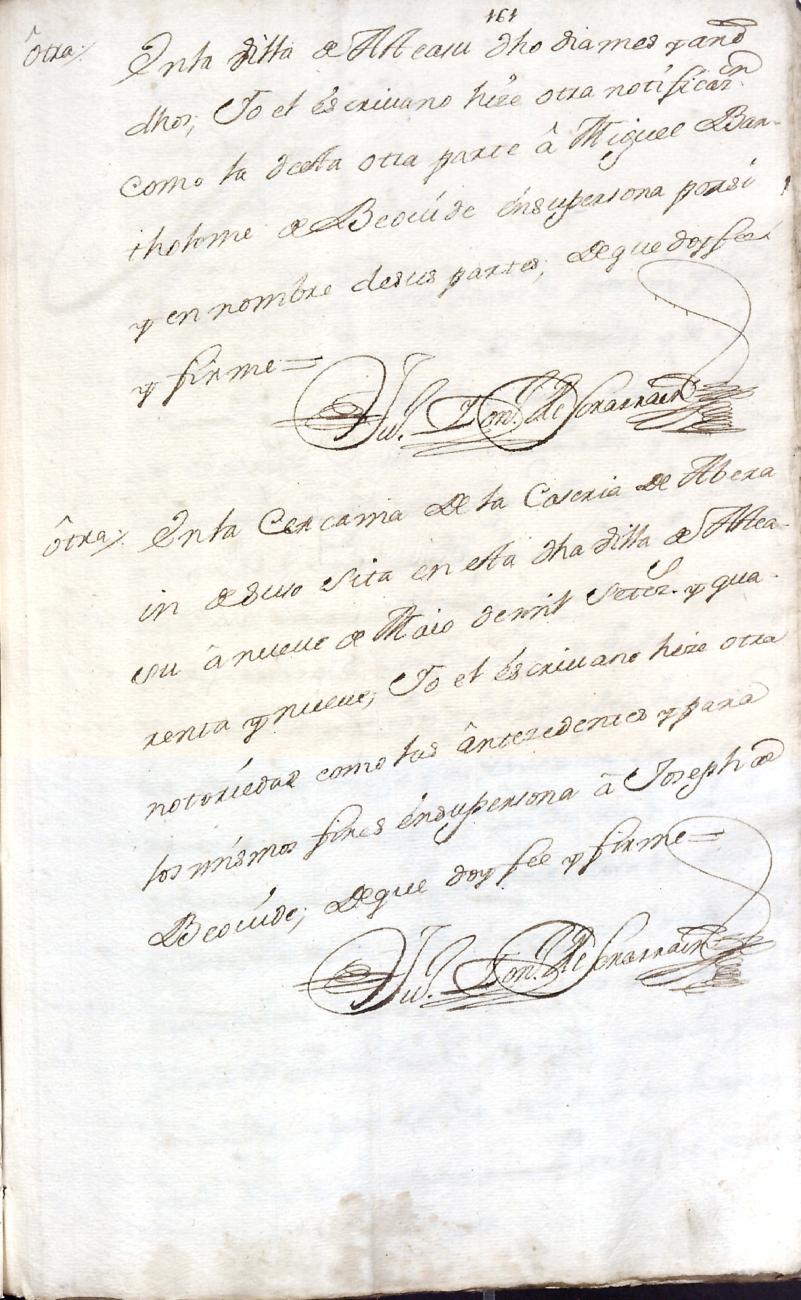 161
ôtra/. En la Villa de Asteasu dho dia mes y año
dhos; Yo el éscriuano hize otra notificazn
como la de esta otra parte â Miguel Bar-
tholome de Beouíde énsupersona porsí
y en nombre desus partes; de que doy fee
y firme=
otra/. En la Cercania de la Caseria de Abera
in de suso sita en esta dha Villa de Astea-
su â nueue de Maio demil Setezs. y qua-
renta y nueue; Yo el éscriuano hize otra
notoriedad como las ântezedentes y para
los mísmos fines énsupersona â Joseph de
Beouíde; de que doy fee y firme=